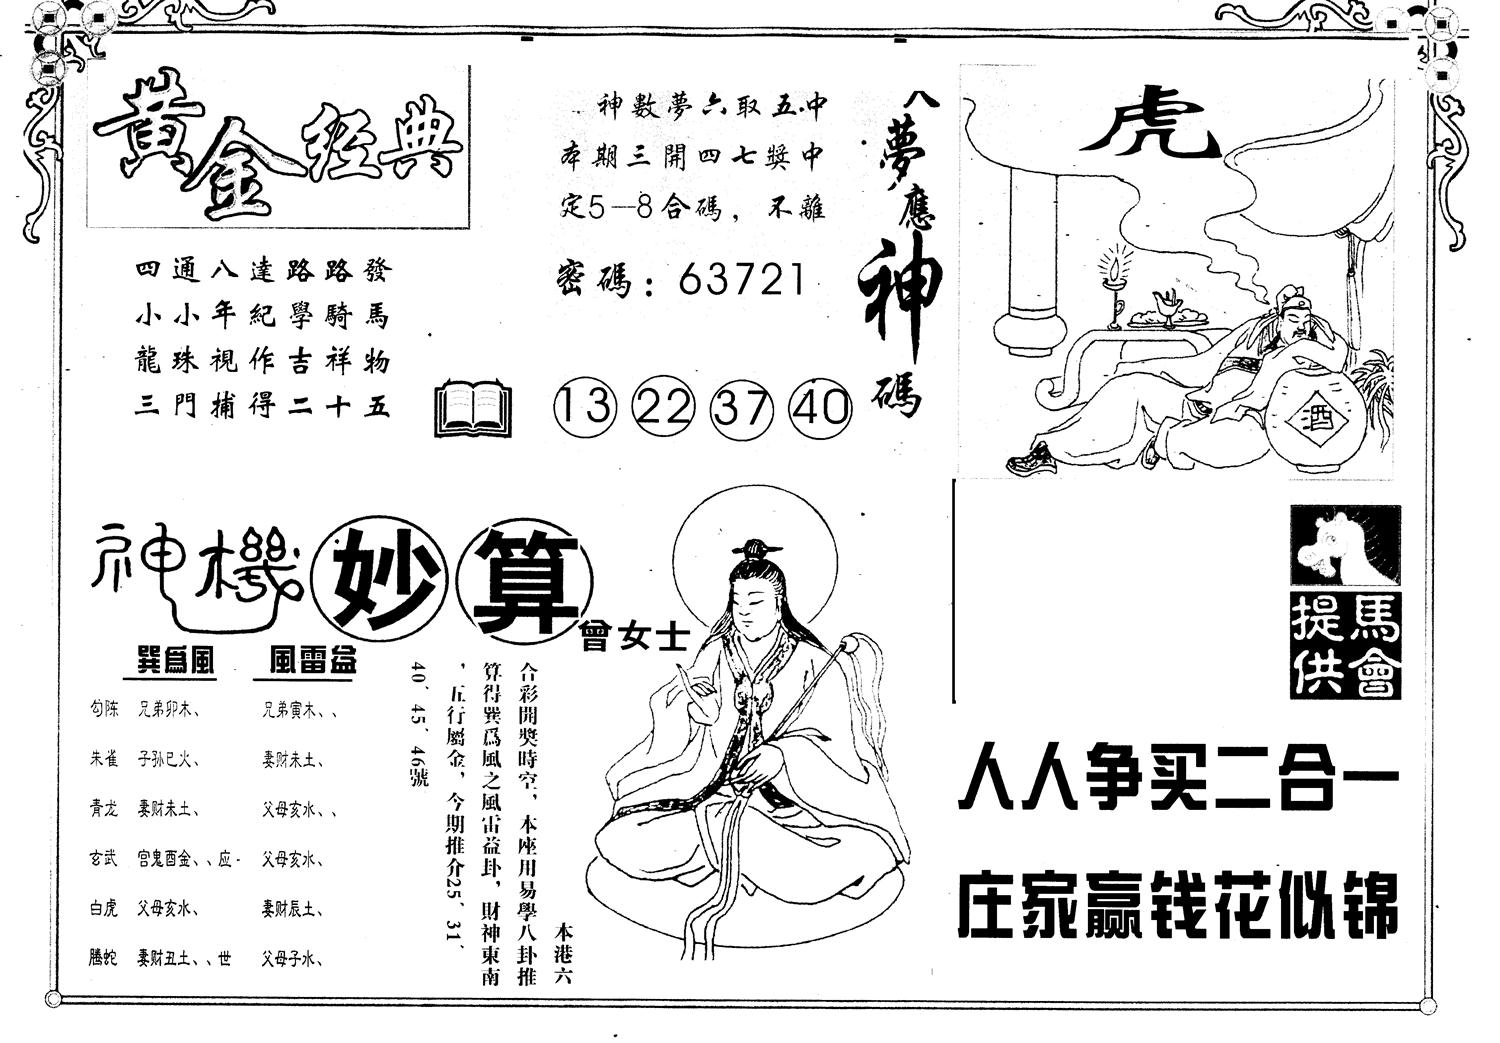 黃金經典
四通八達路路發
小小年紀學騎馬
龍珠視作吉祥物
三門捕得二十五
神數夢六取五.中
本期三開四七獎中
定5—8合碼，不離
密碼：63721
13 22 37 40
八夢應神碼
虎
酒
神機妙算
曾女士
巽爲風 風雷益
勾陈 兄弟卯木、 兄弟寅木、、
朱雀 子孙巳火、 妻财未土、
青龙 妻财未土、 父母亥水、、
玄武 宫鬼酉金、、应- 父母亥水、
白虎 父母亥水、 妻财辰土、
騰蛇 妻财丑土、、世 父母子水、
本港六
合彩開獎時空，本座用易學八卦推
算得巽爲風之風雷益卦，財神東南
，五行屬金，今期推介25、31、
40、45、46號
馬會提供
人人争买二合一
庄家赢钱花似锦